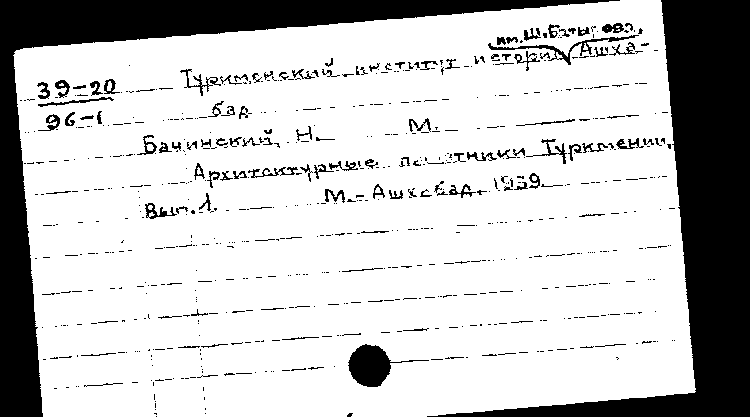 им. Ш. Батырова.
39-20 Туркменский институт истории Ашха-
96-1 бад
Бачинский, Н. М.
Архитектурные памятники Туркмении.
Вып. 1. М.-Ашхабад, 1939.